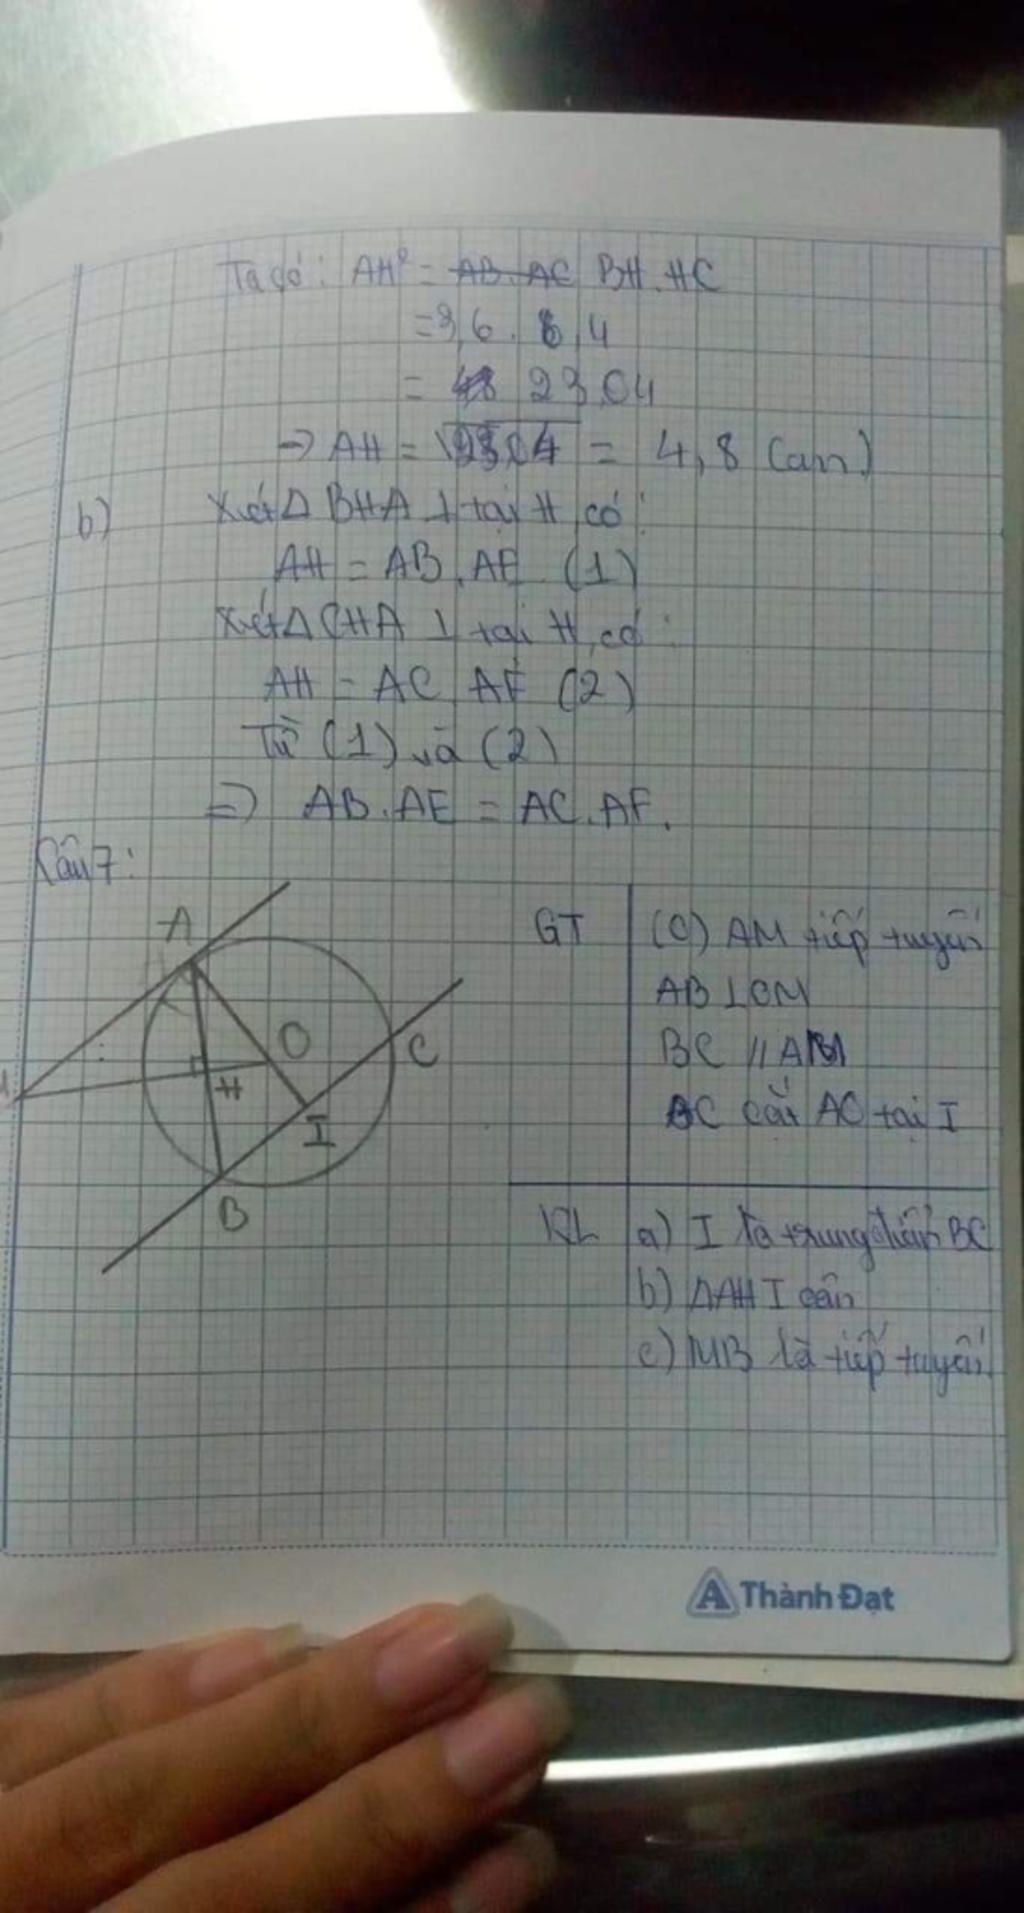 Ta có: AH² = AB.AC BH.HC
= 3,6 . 6,4
= 48 23,04
=> AH = √23,04 = 4,8 (cm)
b) Xét Δ BHA ⊥ tại H, có:
AH = AB.AE (1)
Xét Δ CHA ⊥ tại H, có:
AH = AC AF (2)
Từ (1) và (2)
=> AB.AE = AC.AF.
Câu 7:
A
O
C
H
I
B
GT
(O) AM tiếp tuyến
AB ⊥ OM
BC // AM
BC cắt AO tại I
KL
a) I là trung điểm BC
b) ΔAHI cân
c) MB là tiếp tuyến
A Thành Đạt